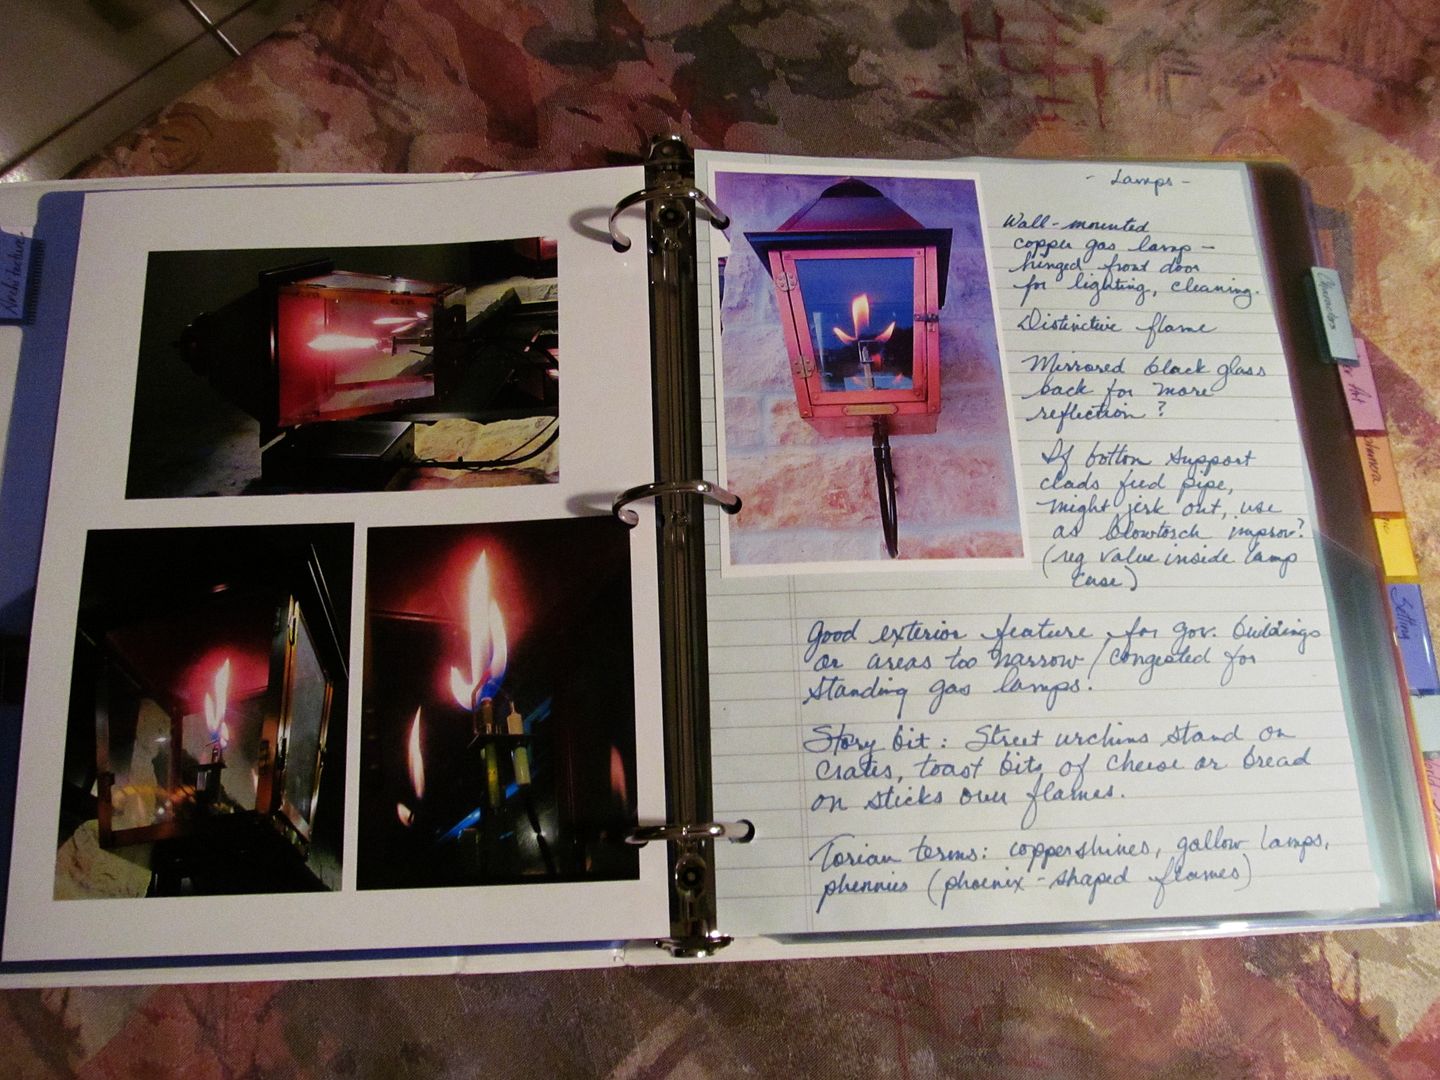 Architecture
- Lamps -
Wall-mounted
copper gas lamp -
hinged front door
for lighting, cleaning.
Distinctive flame
Mirrored black glass
back for more
reflection?
If bottom support
clads feed pipe,
might jerk out, use
as blowtorch improv?
(reg valve inside lamp
case)
Good exterior feature for gov. buildings
or areas too narrow/congested for
standing gas lamps.
Story bit: Street urchins stand on
crates, toast bits of cheese or bread
on sticks over flames.
Torian terms: coppershines, gallow lamps,
phennies (phoenix-shaped flames)
Characters
Art
Setting